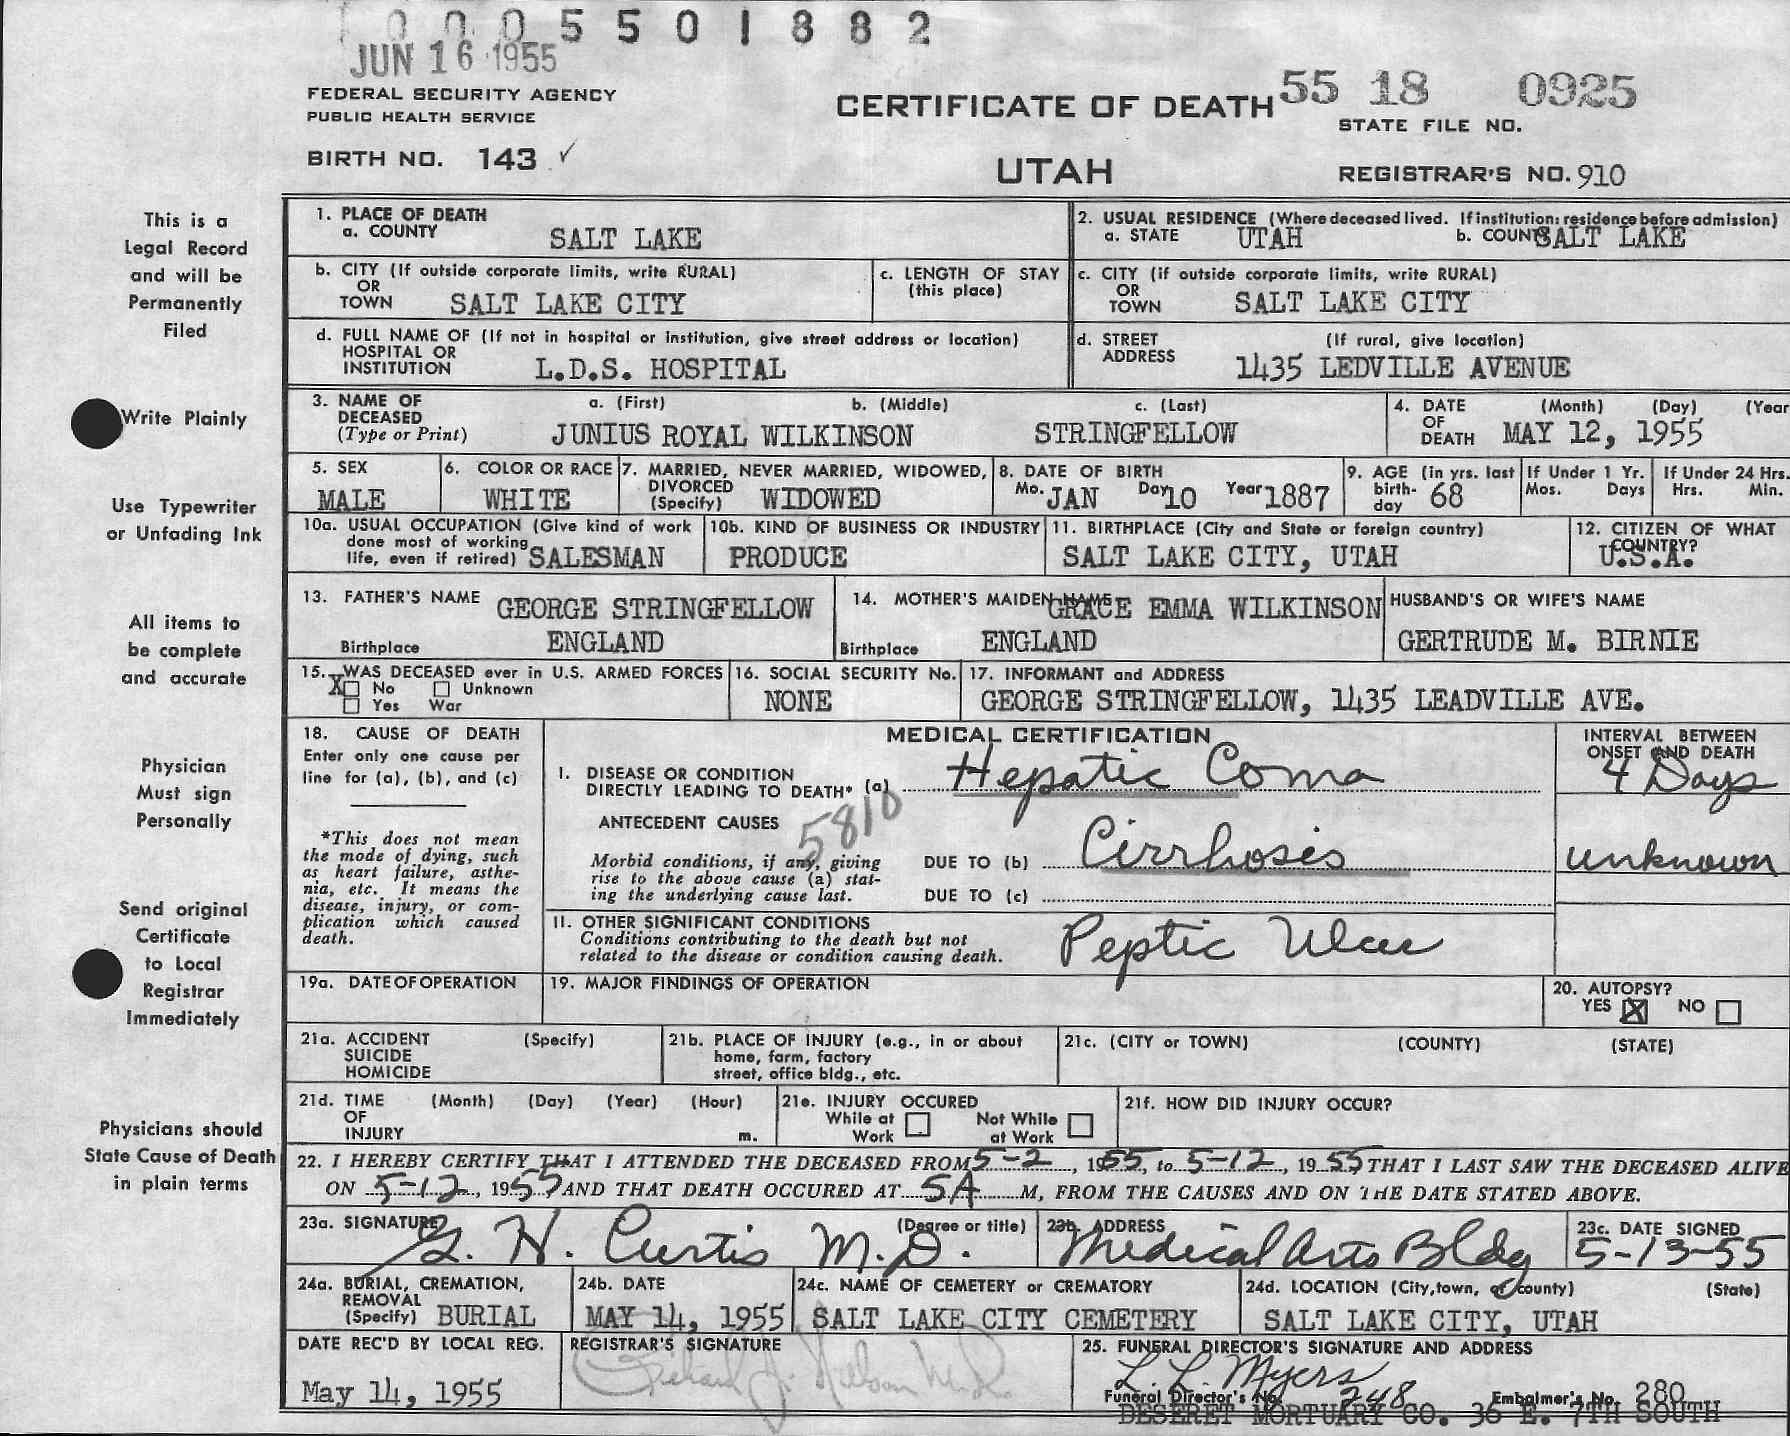 0005501882
JUN 16 1955
FEDERAL SECURITY AGENCY
PUBLIC HEALTH SERVICE
BIRTH NO. 143 ✓
CERTIFICATE OF DEATH
UTAH
55 18 0925
STATE FILE NO.
REGISTRAR'S NO. 910
This is a
Legal Record
and will be
Permanently
Filed
Write Plainly
Use Typewriter
or Unfading Ink
All items to
be complete
and accurate
Physician
Must sign
Personally
Send original
Certificate
to Local
Registrar
Immediately
Physicians should
State Cause of Death
in plain terms
1. PLACE OF DEATH
a. COUNTY SALT LAKE
2. USUAL RESIDENCE (Where deceased lived. If institution: residence before admission)
a. STATE UTAH b. COUNTY SALT LAKE
b. CITY (If outside corporate limits, write RURAL)
OR
TOWN SALT LAKE CITY
c. LENGTH OF STAY
(this place)
c. CITY (if outside corporate limits, write RURAL)
OR
TOWN SALT LAKE CITY
d. FULL NAME OF (If not in hospital or institution, give street address or location)
HOSPITAL OR
INSTITUTION L.D.S. HOSPITAL
d. STREET (If rural, give location)
ADDRESS 1435 LEDVILLE AVENUE
3. NAME OF a. (First) b. (Middle) c. (Last)
DECEASED
(Type or Print) JUNIUS ROYAL WILKINSON STRINGFELLOW
4. DATE (Month) (Day) (Year
OF
DEATH MAY 12, 1955
5. SEX
MALE
6. COLOR OR RACE
WHITE
7. MARRIED, NEVER MARRIED, WIDOWED,
DIVORCED
(Specify) WIDOWED
8. DATE OF BIRTH
Mo. JAN Day 10 Year 1887
9. AGE (in yrs. last
birth-
day 68
If Under 1 Yr.
Mos. Days
If Under 24 Hrs.
Hrs. Min.
10a. USUAL OCCUPATION (Give kind of work
done most of working
life, even if retired) SALESMAN
10b. KIND OF BUSINESS OR INDUSTRY
PRODUCE
11. BIRTHPLACE (City and State or foreign country)
SALT LAKE CITY, UTAH
12. CITIZEN OF WHAT
COUNTRY?
U.S.A.
13. FATHER'S NAME GEORGE STRINGFELLOW
Birthplace ENGLAND
14. MOTHER'S MAIDEN NAME GRACE EMMA WILKINSON
Birthplace ENGLAND
HUSBAND'S OR WIFE'S NAME
GERTRUDE M. BIRNIE
15. WAS DECEASED ever in U.S. ARMED FORCES
X No Unknown
Yes War
16. SOCIAL SECURITY No.
NONE
17. INFORMANT and ADDRESS
GEORGE STRINGFELLOW, 1435 LEADVILLE AVE.
18. CAUSE OF DEATH
Enter only one cause per
line for (a), (b), and (c)
*This does not mean
the mode of dying, such
as heart failure, asthe-
nia, etc. It means the
disease, injury, or com-
plication which caused
death.
MEDICAL CERTIFICATION
I. DISEASE OR CONDITION
DIRECTLY LEADING TO DEATH* (a) Hepatic Coma
5810
ANTECEDENT CAUSES
Morbid conditions, if any, giving
rise to the above cause (a) stat-
ing the underlying cause last.
DUE TO (b) Cirrhosis
DUE TO (c)
II. OTHER SIGNIFICANT CONDITIONS
Conditions contributing to the death but not
related to the disease or condition causing death.
Peptic Ulcer
INTERVAL BETWEEN
ONSET AND DEATH
4 Days
unknown
19a. DATE OF OPERATION
19. MAJOR FINDINGS OF OPERATION
20. AUTOPSY?
YES X NO
21a. ACCIDENT (Specify)
SUICIDE
HOMICIDE
21b. PLACE OF INJURY (e.g., in or about
home, farm, factory
street, office bldg., etc.
21c. (CITY or TOWN) (COUNTY) (STATE)
21d. TIME (Month) (Day) (Year) (Hour)
OF
INJURY m.
21e. INJURY OCCURED
While at Not While
Work at Work
21f. HOW DID INJURY OCCUR?
22. I HEREBY CERTIFY THAT I ATTENDED THE DECEASED FROM 5-2, 1955, to 5-12, 1955 THAT I LAST SAW THE DECEASED ALIVE
ON 5-12, 1955 AND THAT DEATH OCCURED AT 5A M, FROM THE CAUSES AND ON THE DATE STATED ABOVE.
23a. SIGNATURE (Degree or title)
G. H. Curtis M.D.
23b. ADDRESS
Medical Arts Bldg
23c. DATE SIGNED
5-13-55
24a. BURIAL, CREMATION,
REMOVAL
(Specify) BURIAL
24b. DATE
MAY 14, 1955
24c. NAME OF CEMETERY or CREMATORY
SALT LAKE CITY CEMETERY
24d. LOCATION (City, town, or county) (State)
SALT LAKE CITY, UTAH
DATE REC'D BY LOCAL REG.
May 14, 1955
REGISTRAR'S SIGNATURE
25. FUNERAL DIRECTOR'S SIGNATURE AND ADDRESS
L. L. Myers
Funeral Director's No. 248 Embalmer's No. 280
DESERET MORTUARY CO. 36 E. 7TH SOUTH